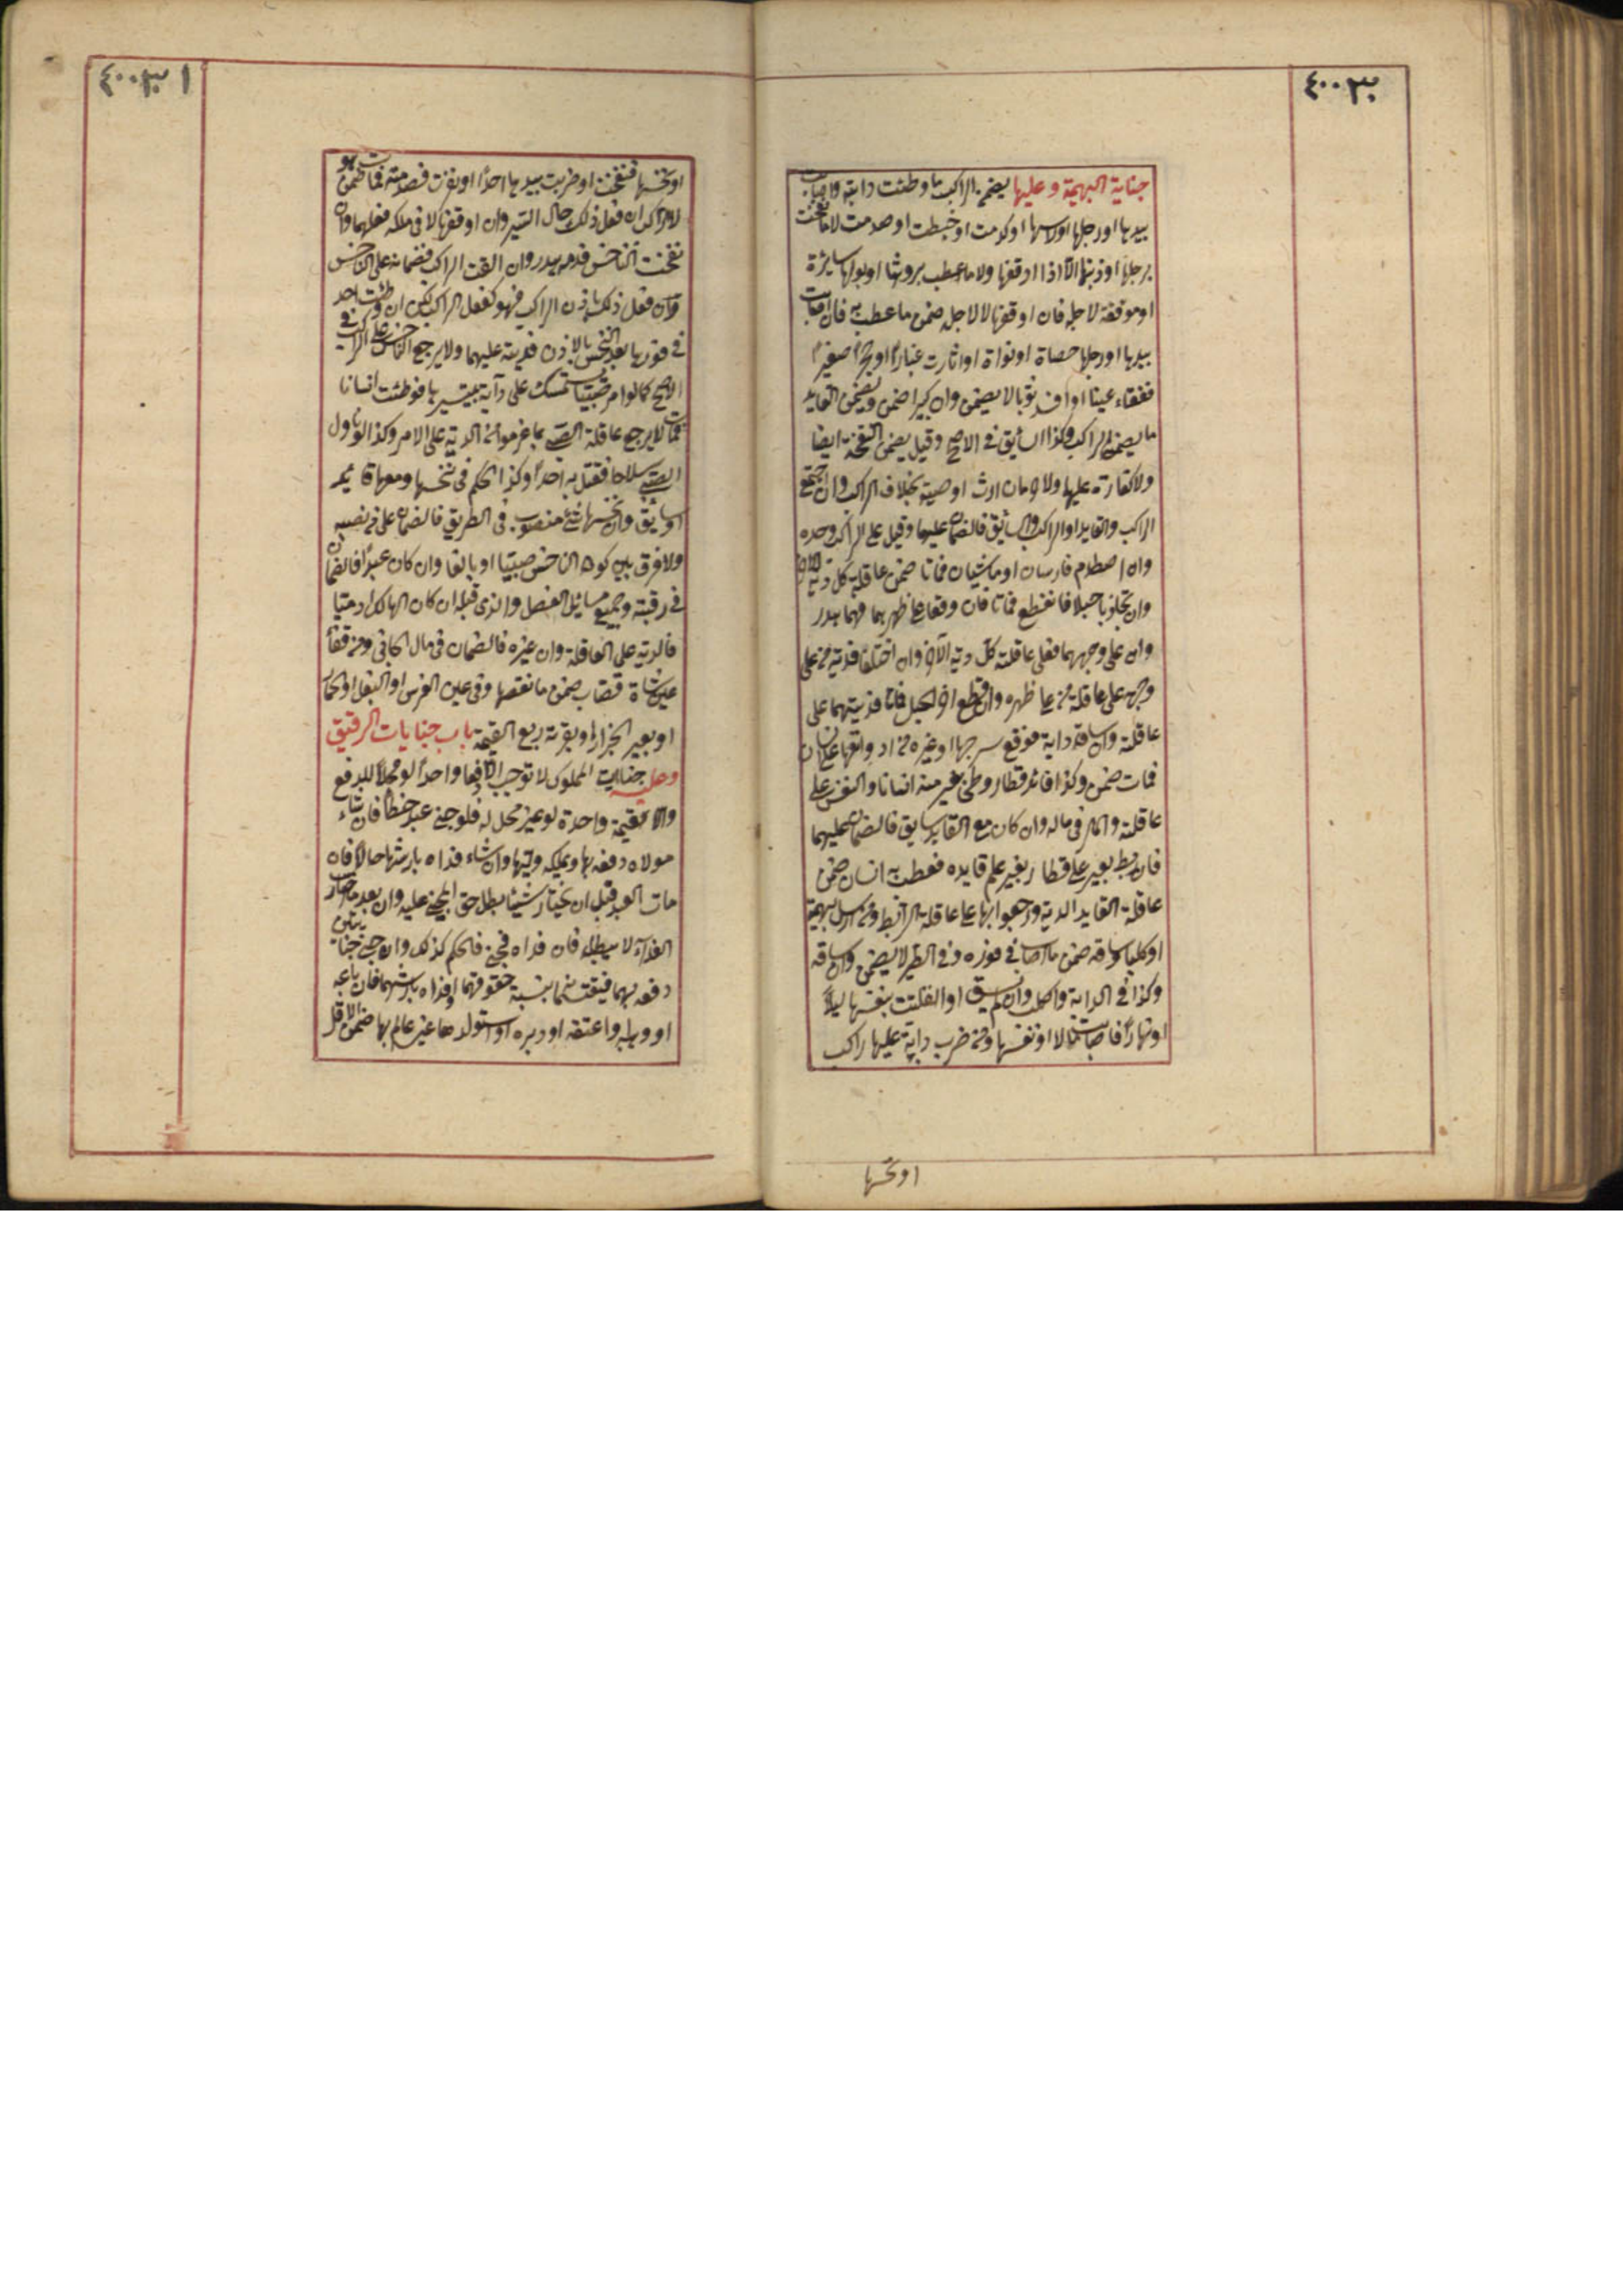 ٤٠٠٣٠
جناية البهيمة وعليها يضمن الراكب ما وطئت دابته واصابت
بيدها او رجلها او راسها او كدمت او خبطت او صدمت لا ما نفحت
برجلها او ذنبها الا اذا اوقفها ولا ما عطب بروثها او بولها سايرة
او موقفة لاجله فان اوقفها لا لاجله ضمن ما عطب به فان اصابت
بيدها او رجلها حصاة او نواة او اثارت غبارا او حجرا صغيرا
ففقاء عينا او افسد ثوبا لا يضمن وان كبيرا ضمن ويضمن القايد
ما يضمن الراكب وكذا السائق في الاصح وقيل يضمن النفحة ايضا
ولا كفارة عليهما ولا حرمان ارث او وصية بخلاف الراكب وان اجتمع
الراكب والقايد او الراكب والسائق فالضمان عليهما وقيل على الراكب وحده
وان اصطدم فارسان او ماشيان فماتا ضمن عاقلة كل دية الاخر
وان تجاذبا حبلا فانقطع فماتا فان وقعا على ظهرهما فهما هدر
وان على وجههما فعلى عاقلة كل دية الآخر وان اختلفا فدية من على
وجهه على عاقلة من على ظهره وان قطع اخر الحبل فماتا فديتهما على
عاقلته وان ساق دابة فوقع سرجها او غيره من ادواتها على انسان
فمات ضمن وكذا قائد قطار وطئ بعير منه انسانا والنفس على
عاقلته والمال في ماله وان كان مع القايد سايق فالضمان عليهما
فان ربط بعير على قطار بغير علم قايده فعطب به انسان ضمن
عاقلة القايد الدية ورجعوا بها على عاقلة الرابط ومن ارسل بهيمة
او كلبا وساقه ضمن ما اصاب في فوره وفي الطير لا يضمن وان ساقه
وكذا في الدابة والكلب وان لم يسق او انفلتت بنفسها ليلا
او نهارا فاصابت مالا او نفسا ومن ضرب دابة عليها راكب
او نخسها
٤٠٠٣١
او نخسها فنفحت او ضربت بيدها احدا او نفرت فصدمته فمات ضمن هو
لا الراكب ان فعل ذلك حال السير وان اوقفها لا في ملكه فعليهما وان
نفحت الناخس فدمه هدر وان القت الراكب فضمانه على الناخس
وان فعل ذلك باذن الراكب فهو كفعل الراكب لكن ان وطئت احدا
في فورها بعد النخس بالاذن فديته عليهما ولا يرجع الناخس على الراكب في
الاصح كما لو امر صبيا يستمسك على دابة بتسييرها فوطئت انسانا
فمات لا يرجع عاقلة الصبي بما غرموا من الدية على الامر وكذا لو ناول
الصبي سلاحا فقتل به احدا وكذا الحكم في نخسها ومعها قايد
او سايق وان نخسها شئ منصوب في الطريق فالضمان على من نصبه
ولا فرق بين كون الناخس صبيا او بالغا وان كان عبدا فالضمان
في رقبته وجميع مسائل الفصل والذي قبله ان كان الهالك ادميا
فالدية على العاقلة وان غيره فالضمان في مال الجاني ومن فقأ
عين شاة قصاب ضمن ما نقصها وفي عين الفرس او البغل او الحمار
او بعير الجزار او بقرته ربع القيمة باب جنايات الرقيق
وعليه جنايات المملوك لا توجب الا دفعا واحدا لو محلا للدفع
والا قيمة واحدة لو غير محل له فلو جنى عبد خطأ فان شاء
مولاه دفعه بها ويملكه وليها وان شاء فداه بارشها حالا فان
مات العبد قبل ان يختار شيئا بطل حق المجني عليه وان بعد ما اختار
الفداء لا يبطل فان فداه فجنى فالحكم كذلك وان جنى جنايتين
دفعه بهما فيقتسمانه بنسبة حقوقهما او فداه بارشهما فان باعه
او وهبه او اعتقه او دبره او استولدها غير عالم بها ضمن الاقل